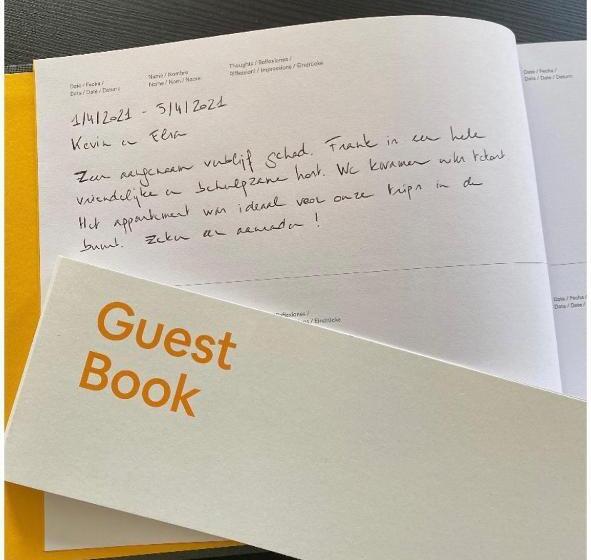 Date / Fecha /
Data / Date / Datum
Name / Nombre
Nome / Nom / Name
Thoughts / Reflexiones /
Riflessioni / Impressions / Eindrücke
Date / Fecha /
Data / Date / Datum
1/4/2021 - 5/4/2021
Kevin en Elsa
Zeer aangenaam verblijf gehad. Frank is een hele
vriendelijke en behulpzame host. We kwamen niks tekort
Het appartement was ideaal voor onze trips in de
buurt. Zeker een aanrader!
Date / Fecha /
Data / Date /
Reflexiones /
/ Eindrücke
Guest
Book